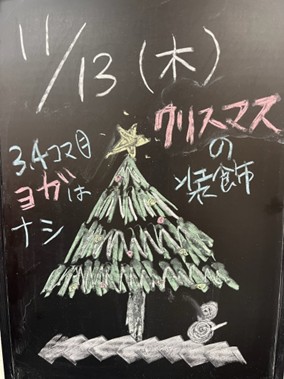 11/13(木)
クリスマス
の
装飾
3,4コマ目
ヨガは
ナシ